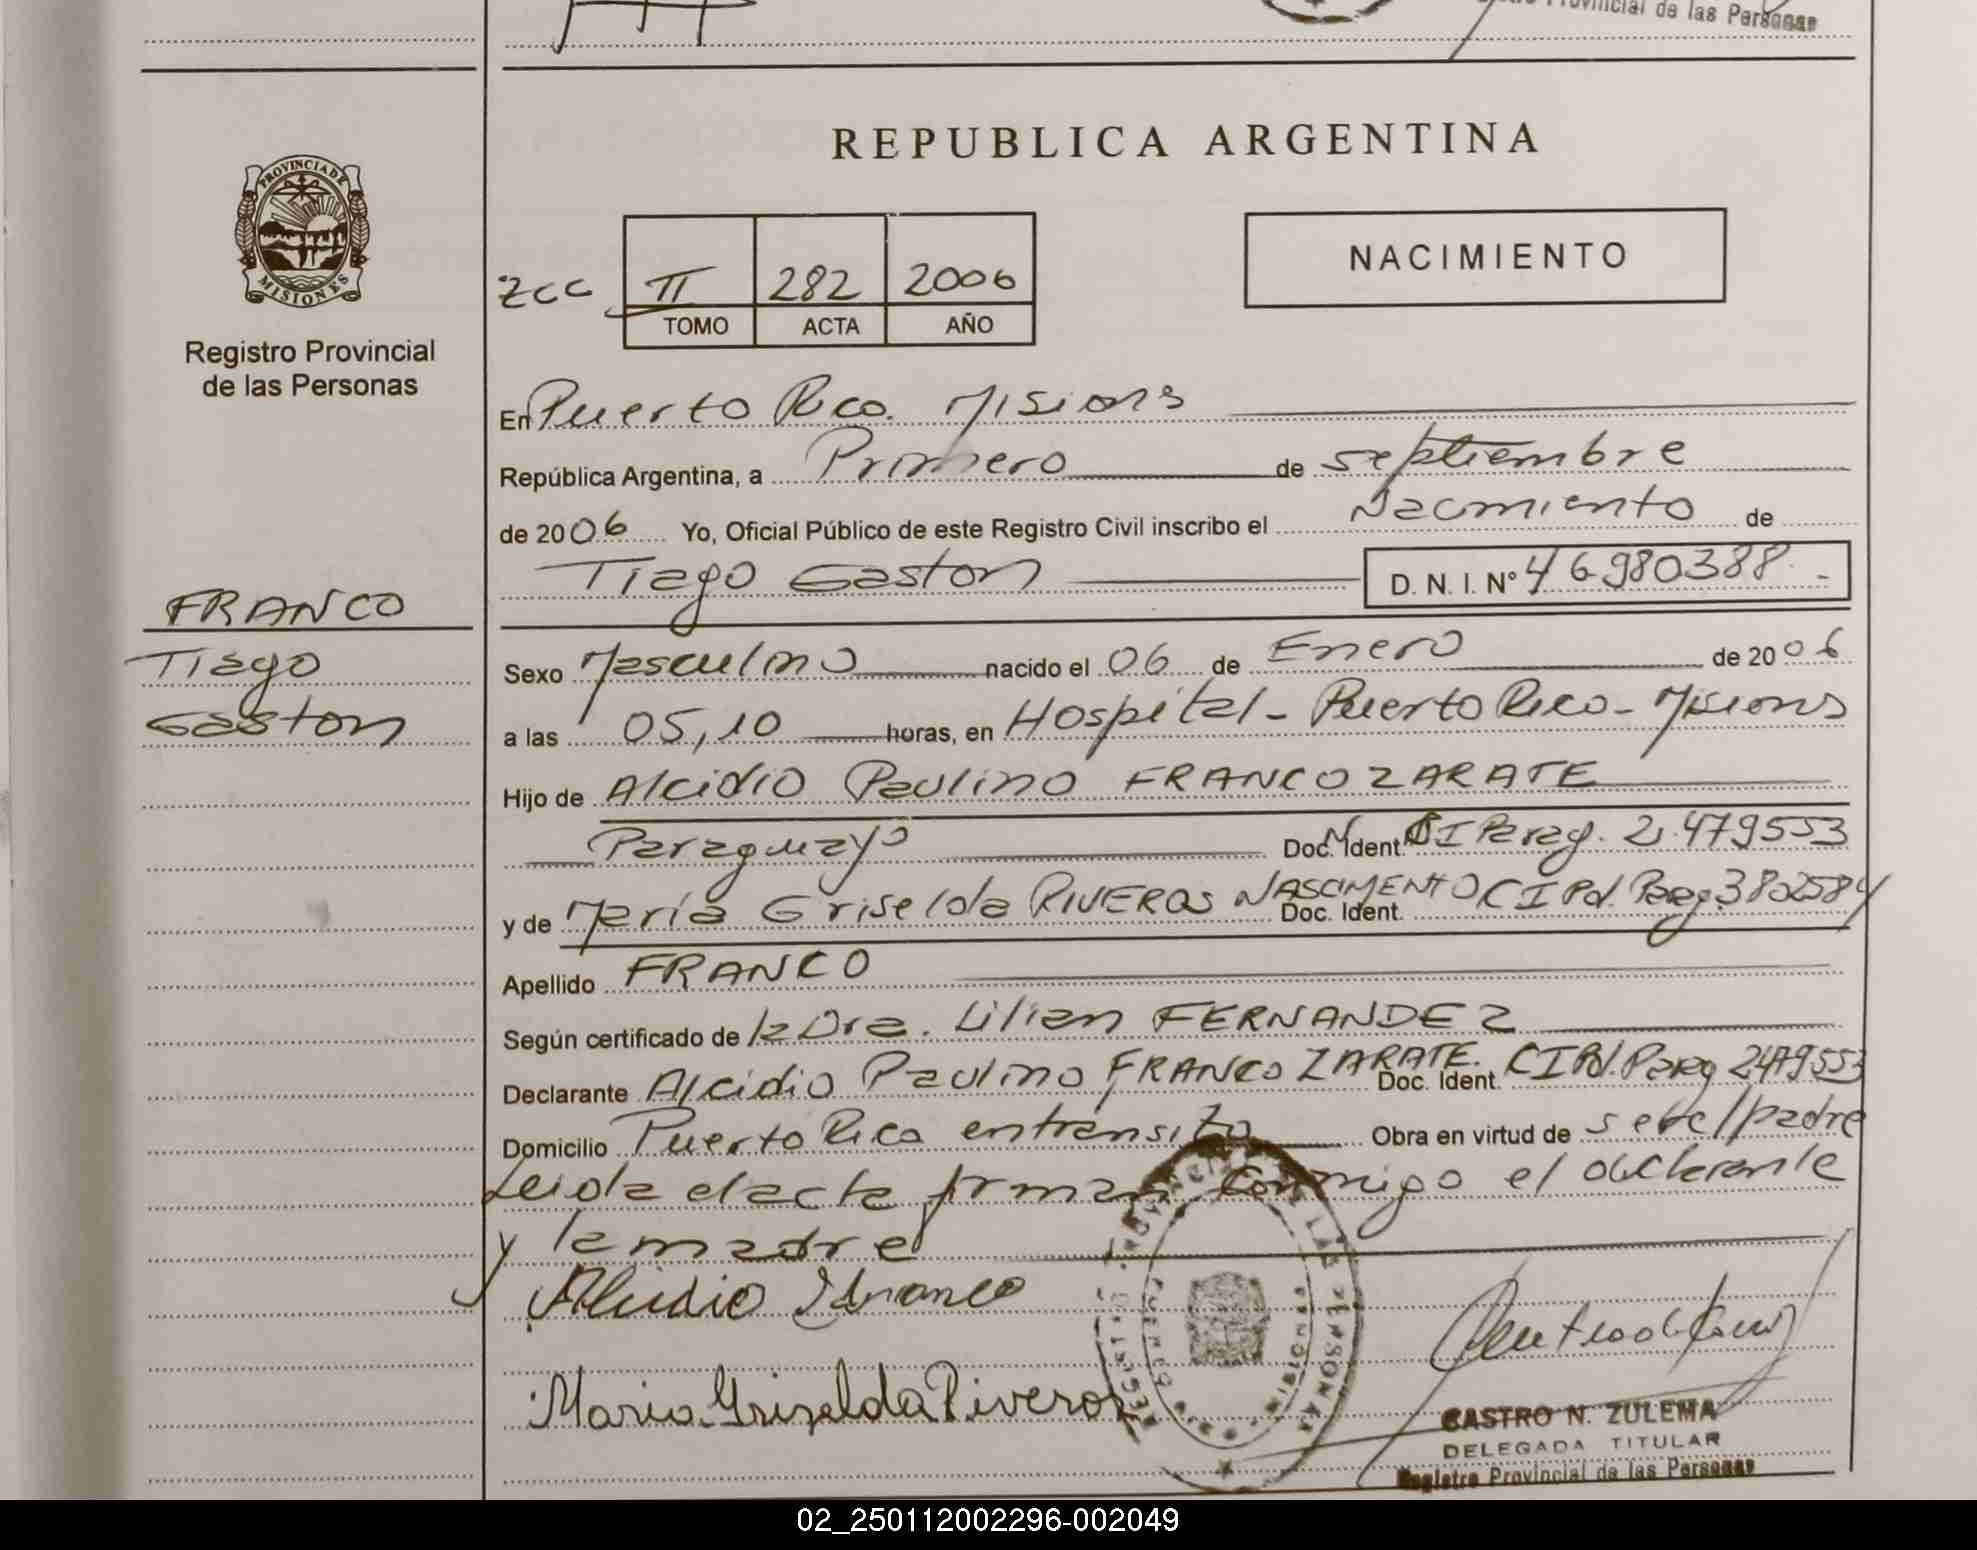 Provincial de las Personas
REPUBLICA ARGENTINA
PROVINCIA DE
MISIONES
Registro Provincial
de las Personas
NACIMIENTO
zcc II 282 2006
TOMO ACTA AÑO
En Puerto Rico. Misions
República Argentina, a Primero de septiembre
de 2006 Yo, Oficial Público de este Registro Civil inscribo el Nacmiento de
Tiago Gaston D. N. I. N° 46980388.-
FRANCO
Tiago
Gaston
Sexo Masculino nacido el 06 de Enero de 2006
a las 05,10 horas, en Hospital - Puerto Rico - Misions
Hijo de Alcidio Paulino FRANCO ZARATE
Paraguayo Doc. Ident. CI Parag. 2.479553
y de María Griselda RIVEROS NASCIMENTO Doc. Ident. CI Pol. Parag 3802584
Apellido FRANCO
Según certificado de la Dra. Lilian FERNANDEZ
Declarante Alcidio Paulino FRANCO ZARATE. Doc. Ident. CI Pol. Parag 2479553
Domicilio Puerto Rico en transito Obra en virtud de ser el padre
Leida el acta firman conmigo el declarante
y la madre
Alcidio Franco
Maria Griselda Riveros
CASTRO N. ZULEMA
DELEGADA TITULAR
Registro Provincial de las Personas
02_250112002296-002049